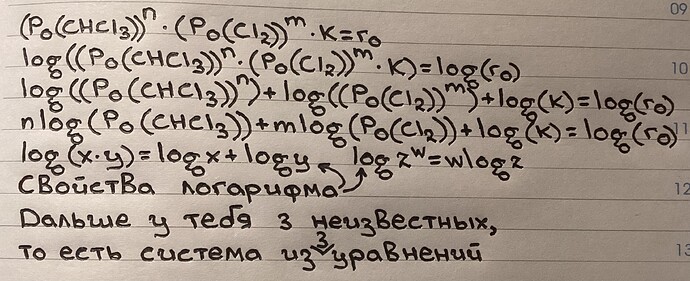 (P₀(CHCl3))ⁿ·(P₀(Cl2))ᵐ·K=r₀
log((P₀(CHCl3))ⁿ·(P₀(Cl2))ᵐ·K)=log(r₀)
log((P₀(CHCl3))ⁿ)+log((P₀(Cl2))ᵐ)+log(K)=log(r₀)
nlog(P₀(CHCl3))+mlog(P₀(Cl2))+log(K)=log(r₀)
log(x·y)=logx+logy logzʷ=wlogz
свойства логарифма
Дальше у тебя 3 неизвестных,
то есть система из 3 уравнений
09
10
11
12
13